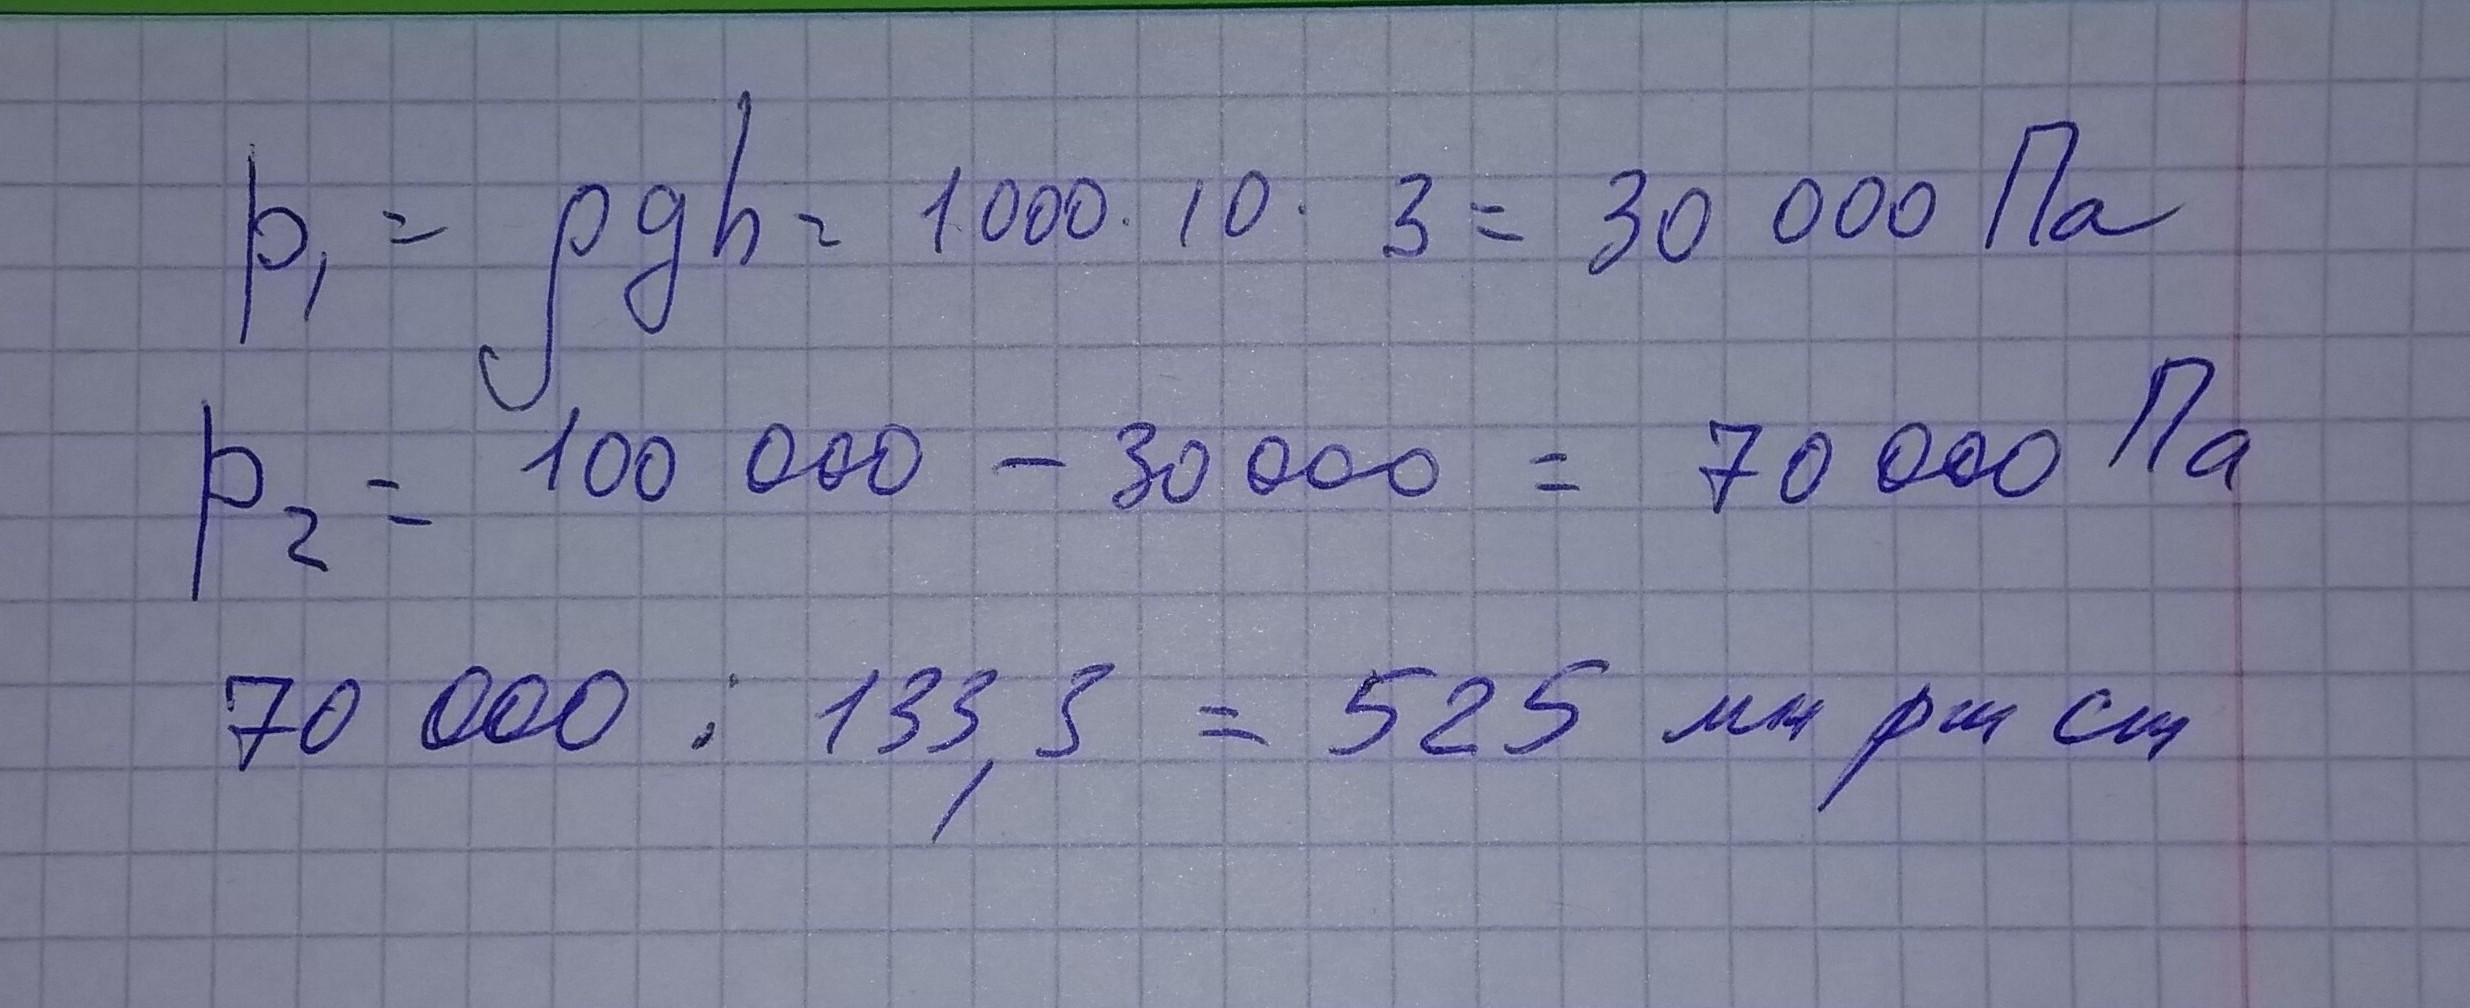 p₁ = ρgh = 1000 · 10 · 3 = 30 000 Па
p₂ = 100 000 - 30 000 = 70 000 Па
70 000 : 133,3 = 525 мм рт ст